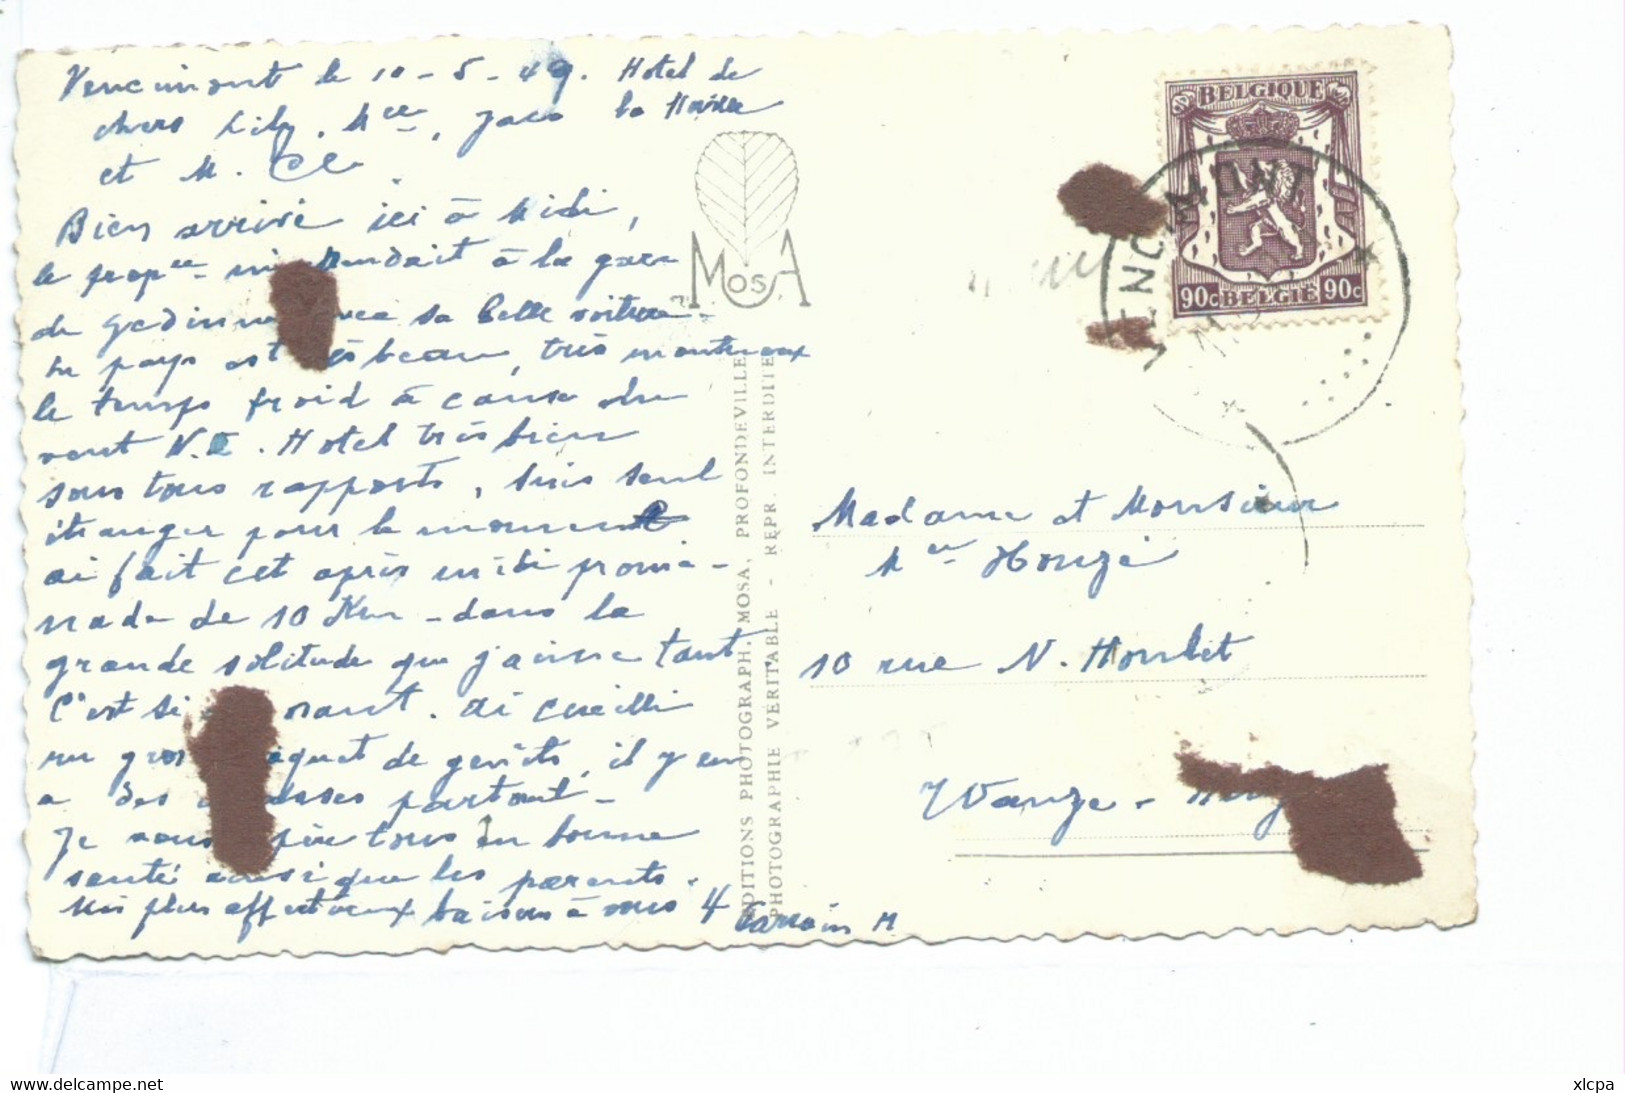 Vencimont le 10-5-49. Hotel de
chers Lily, Mce, Jaco la Houille
et M. Cl.
Bien arrivé ici à midi,
le propre m'attendait à la gare
de Gedinne avec sa belle voiture.
Le pays est très beau, très montueux
le temps froid à cause du
vent N.E. Hotel très bien
sous tous rapports, suis seul
étranger pour le moment
ai fait cet après midi prome-
nade de 10 Km - dans la
grande solitude que j'aime tant
C'est si
un gros bouquet de genêts, il y en
a des masses partout -
Je vous espère tous en bonne
santé ainsi que les parents.
Mes plus affectueux baisers à vous 4 Parrain M
MOSA
EDITIONS PHOTOGRAPH. MOSA, PROFONDEVILLE
PHOTOGRAPHIE VERITABLE - REPR. INTERDITE
BELGIQUE
90c BELGIE 90c
VENCIMONT
Madame et Monsieur
Mce Houzé
10 rue N. Honlet
Wanze - Huy
delcampe.net
xlcpa